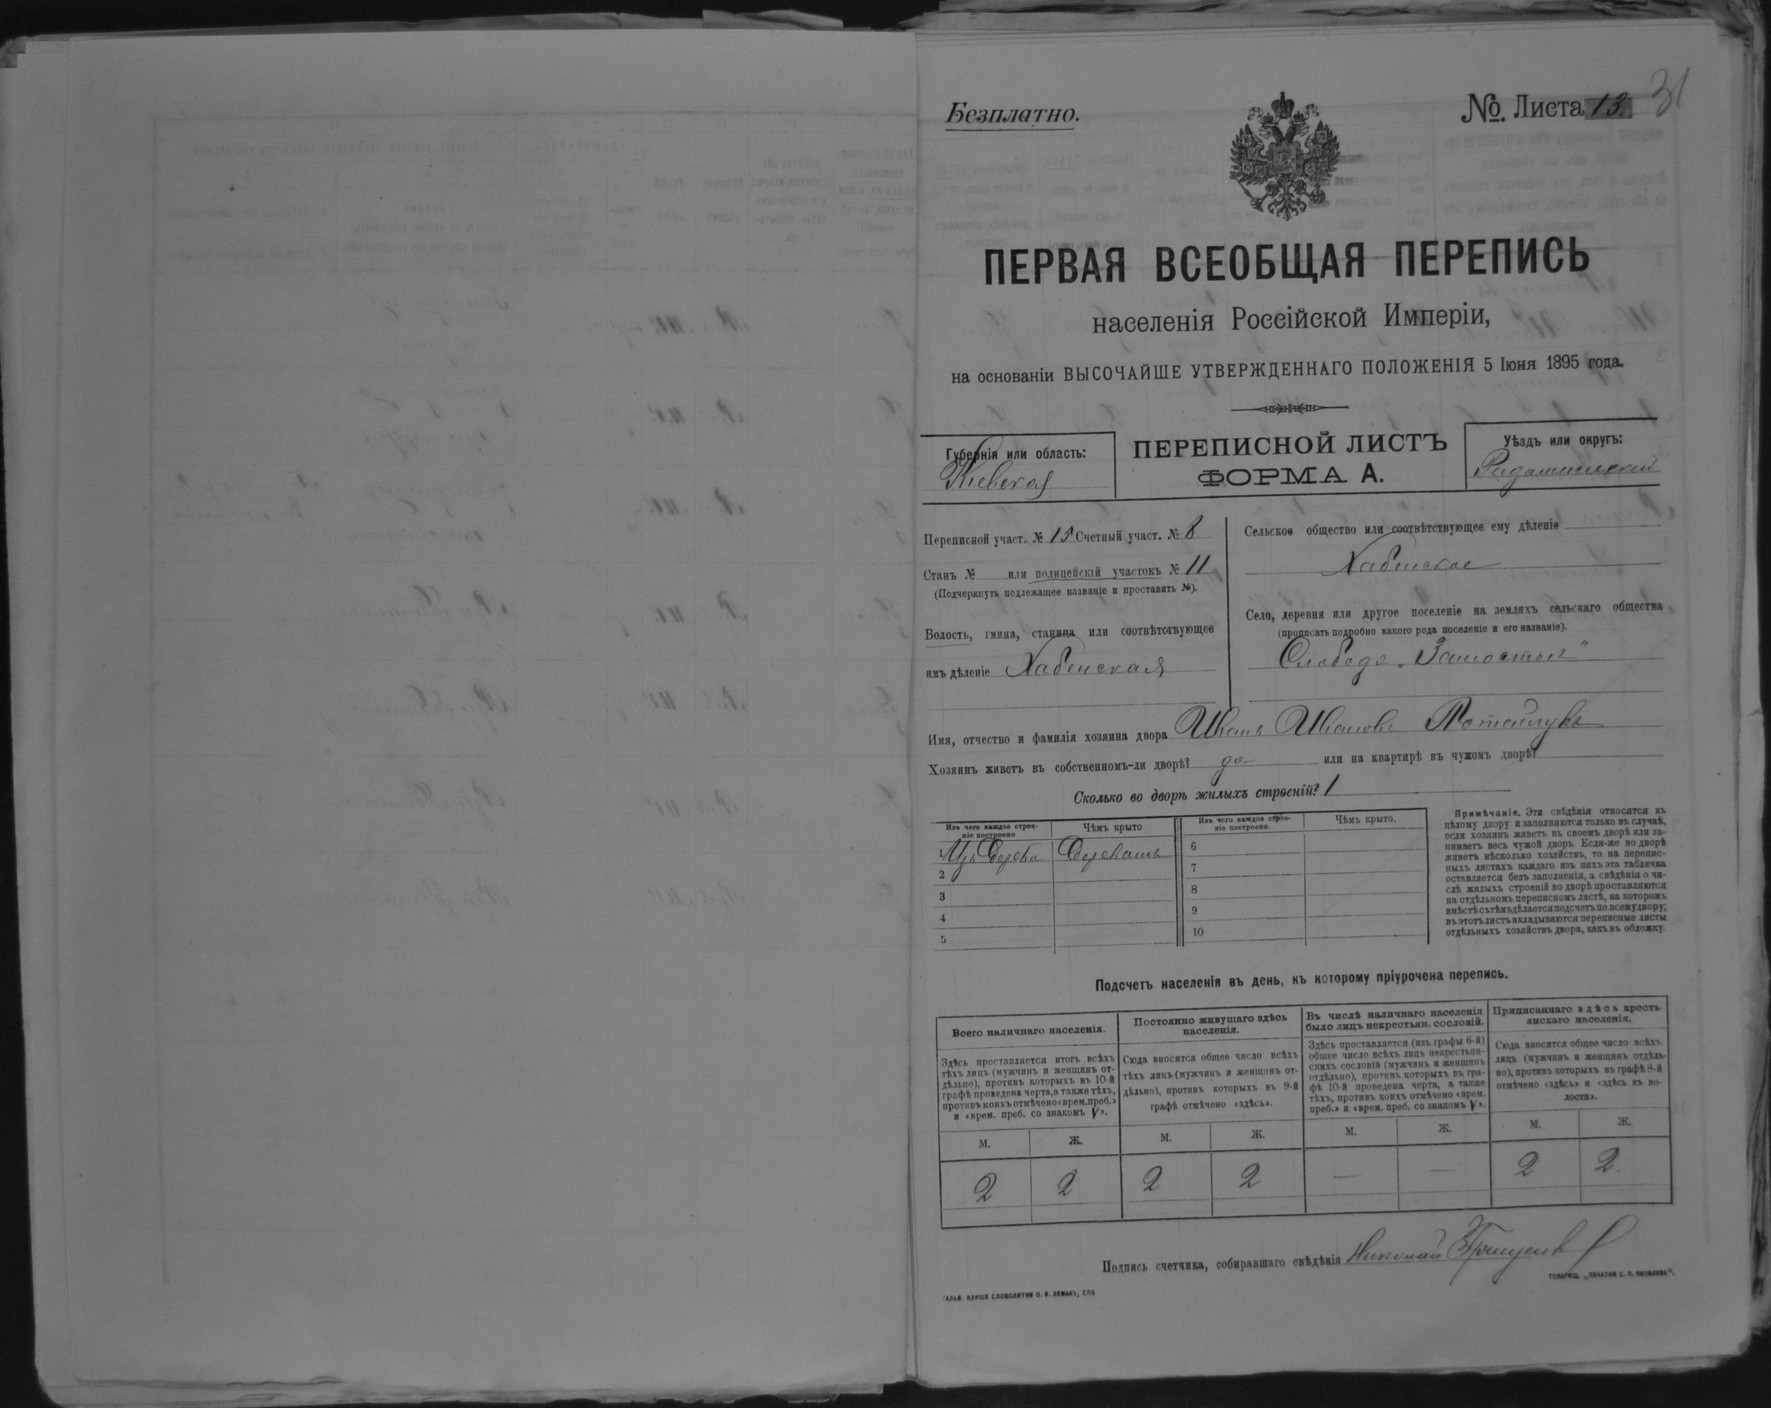 31
Безплатно.
№ Листа 13
ПЕРВАЯ ВСЕОБЩАЯ ПЕРЕПИСЬ
населенія Россійской Имперіи,
на основаніи ВЫСОЧАЙШЕ УТВЕРЖДЕННАГО ПОЛОЖЕНІЯ 5 Іюня 1895 года.
Губернія или область:
Кіевская
ПЕРЕПИСНОЙ ЛИСТЪ
ФОРМА А.
Уѣздъ или округъ:
Радомысльскій
Переписной участ. № 13 Счетный участ. № 8
Станъ № или полицейскій участокъ № 11
(Подчеркнуть подлежащее названіе и проставить №).
Волость, гмина, станица или соотвѣтствующее
имъ дѣленіе Хабенская
Сельское общество или соотвѣтствующее ему дѣленіе
Хабенское
Село, деревня или другое поселеніе на земляхъ сельскаго общества
(прописать подробно какого рода поселеніе и его названіе).
Слобода „Замостье“
Имя, отчество и фамилія хозяина двора Иванъ Ивановъ
Хозяинъ живетъ въ собственномъ-ли дворѣ? да или на квартирѣ въ чужомъ дворѣ?
Сколько во дворѣ жилыхъ строеній? 1
Изъ чего каждое строе-
ніе построено
Чѣмъ крыто
Изъ чего каждое строе-
ніе построено.
Чѣмъ крыто.
1 Изъ дерева Деревомъ
2
3
4
5
6
7
8
9
10
Примѣчаніе. Эти свѣдѣнія относятся къ
цѣлому двору и заполняются только въ случаѣ,
если хозяинъ живетъ въ своемъ дворѣ или за-
нимаетъ весь чужой дворъ. Если-же во дворѣ
живетъ нѣсколько хозяйствъ, то на перепис-
ныхъ листахъ каждаго изъ нихъ эта табличка
оставляется безъ заполненія, а свѣдѣнія о чи-
слѣ жилыхъ строеній во дворѣ проставляются
на отдѣльномъ переписномъ листѣ, на которомъ
вмѣстѣ съ тѣмъ дѣлается подсчетъ по всему двору;
въ этотъ листъ вкладываются переписные листы
отдѣльныхъ хозяйствъ двора, какъ въ обложку.
Подсчетъ населенія въ день, къ которому пріурочена перепись.
Всего наличнаго населенія.
Здѣсь проставляется итогъ всѣхъ
тѣхъ лицъ (мужчинъ и женщинъ от-
дѣльно), противъ которыхъ въ 10-й
графѣ проведена черта, а также тѣхъ,
противъ коихъ отмѣчено «врем. преб.»
и «врем. преб. со знакомъ V».
Постоянно живущаго здѣсь
населенія.
Сюда вносится общее число всѣхъ
тѣхъ лицъ (мужчинъ и женщинъ от-
дѣльно), противъ которыхъ въ 9-й
графѣ отмѣчено «здѣсь».
Въ числѣ наличнаго населенія
было лицъ некрестьян. сословій.
Здѣсь проставляется (изъ графы 6-й)
общее число всѣхъ лицъ некрестьян-
скихъ сословій (мужчинъ и женщинъ
отдѣльно), противъ которыхъ въ гра-
фѣ 10-й проведена черта, а также
тѣхъ, противъ коихъ отмѣчено «врем.
преб.» и «врем. преб. со знакомъ V».
Приписаннаго здѣсь кресть-
янскаго населенія.
Сюда вносится общее число всѣхъ
лицъ (мужчинъ и женщинъ отдѣль-
но), противъ которыхъ въ графѣ 8-й
отмѣчено «здѣсь» и «здѣсь къ во-
лости».
М. Ж. М. Ж. М. Ж. М. Ж.
2 2 2 2 — — 2 2.
Подпись счетчика, собиравшаго свѣдѣнія Николай
ГАЛЬВ. КЛИШЕ СЛОВОЛИТНИ О. И. ЛЕМАНЪ, СПБ
ТОВАРИЩ. „ПЕЧАТНЯ С. П. ЯКОВЛЕВА“.